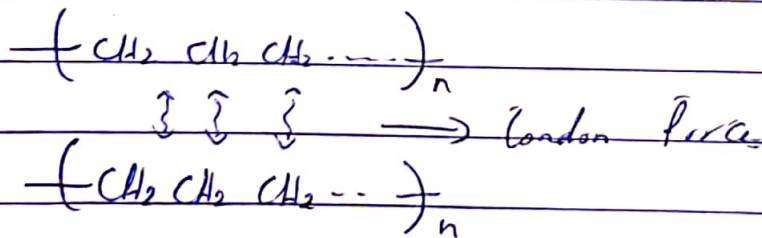 -( CH2 CH2 CH2 ..... )-n
→ London Force
-( CH2 CH2 CH2 ... )-n